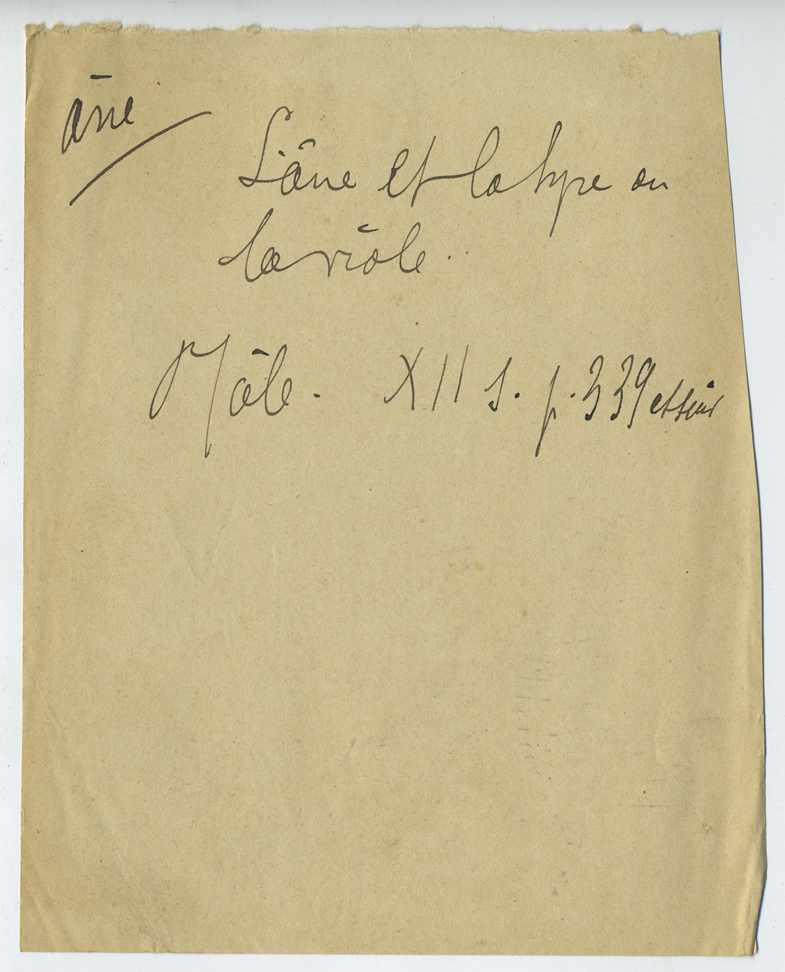 âne
L'âne et la lyre ou
la viole.
Mâle. XII s. p. 339 et suiv